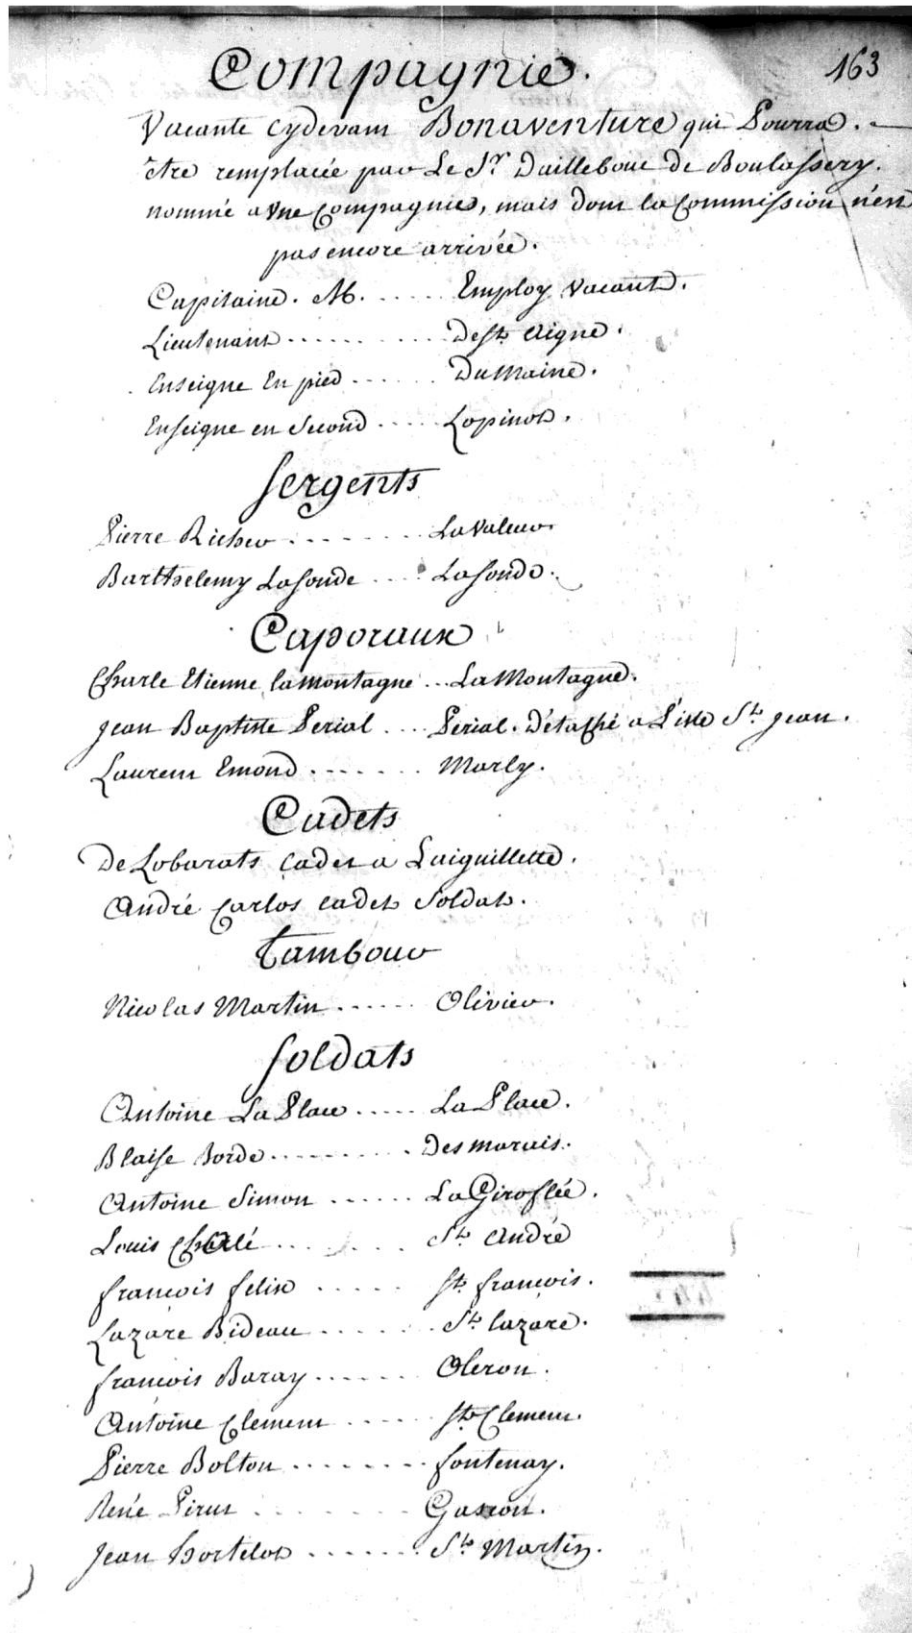 163
Compagnie.
Vacante cydevant Bonaventure qui Pourra.
être remplacée par Le Sr. Daillebout de Boulassery.
nommé a Une Compagnie, mais dont la Commission n'est
pas encore arrivée.
Capitaine. M. ..... Employ Vacant.
Lieutenant .......... De St. Aigne.
Enseigne En pied ...... DuMaine.
Enseigne en Second ..... Lopinot.
Sergents
Pierre Richer ........ LaValeur
Barthelemy Lasonde .... Lasonde.
Caporaux
Charle Etienne lamontagne ... LaMontagne.
Jean Baptiste Perial .... Perial. Détaché a L'isle St. Jean.
Laurent Emond ....... Marly.
Cadets
De Lobarats Cadet a Laiguillette.
André Carlos cadet Soldat.
Tambour
Nicolas Martin ...... Olivier.
Soldats
Antoine LaPlace ..... LaPlace.
Blaise Borde .......... Desmarais.
Antoine Simon ...... LaGiroflée.
Louis .......... St. André
francois felix ..... St. francois.
Lazare Bideau ...... St. lazare.
francois Baray ...... Oleron.
Antoine Clement ..... St. Clement.
Pierre Bolton ........ fontenay.
René ........ Gascon.
Jean hortelot ....... St. Martin.